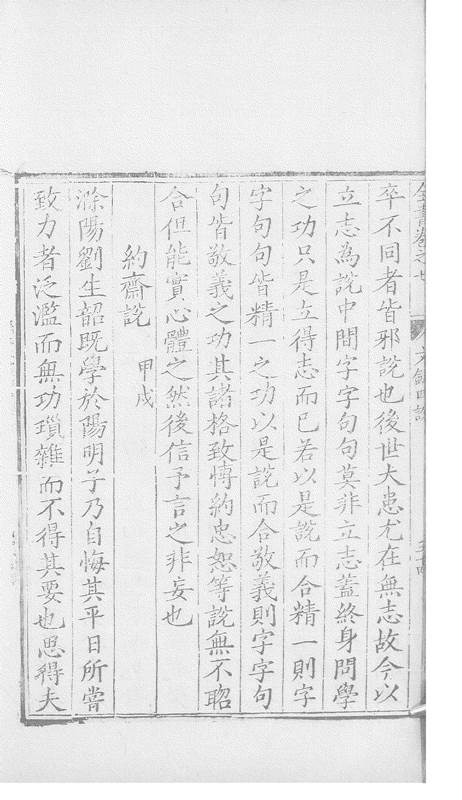 全書卷之七
卒不同者皆邪說也後世大患尤在無志故今以
立志為說中間字字句句莫非立志蓋終身問學
之功只是立得志而已若以是說而合精一則字
字句句皆精一之功以是說而合敬義則字字句
句皆敬義之功其諸格致博約忠恕等說無不脗
合但能實心體之然後信予言之非妄也
約齋說 甲戌
滁陽劉生韶既學於陽明子乃自悔其平日所嘗
致力者泛濫而無功瑣雜而不得其要也思得夫